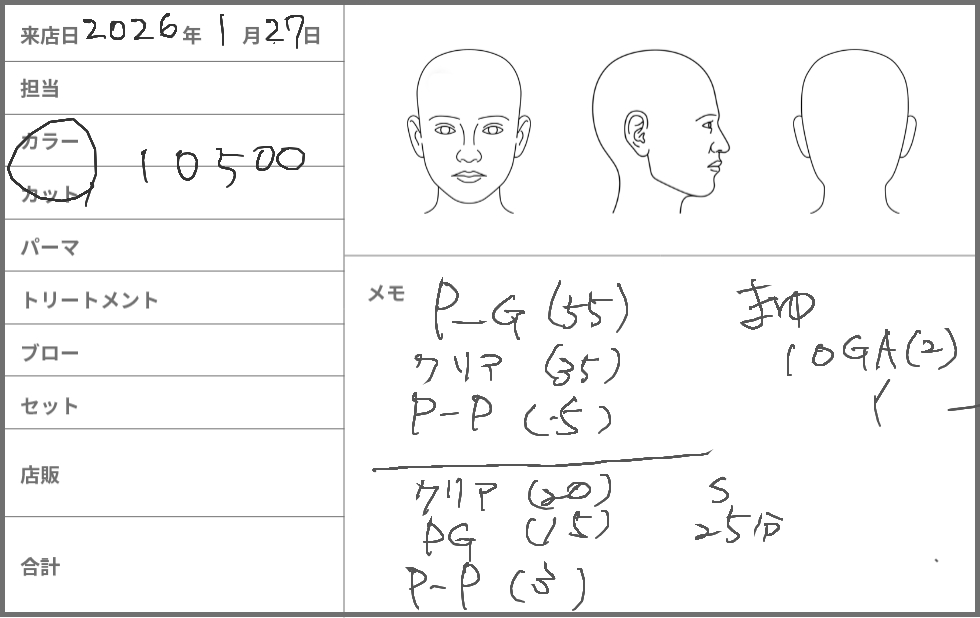 来店日 2026年 1月27日
担当
カラー
カット
10500
パーマ
トリートメント
ブロー
セット
店販
合計
メモ
P-G (55)
クリア (35)
P-P (5)
クリア (20)
PG (15)
P-P (3)
S
25分
まゆ
10GA(2)